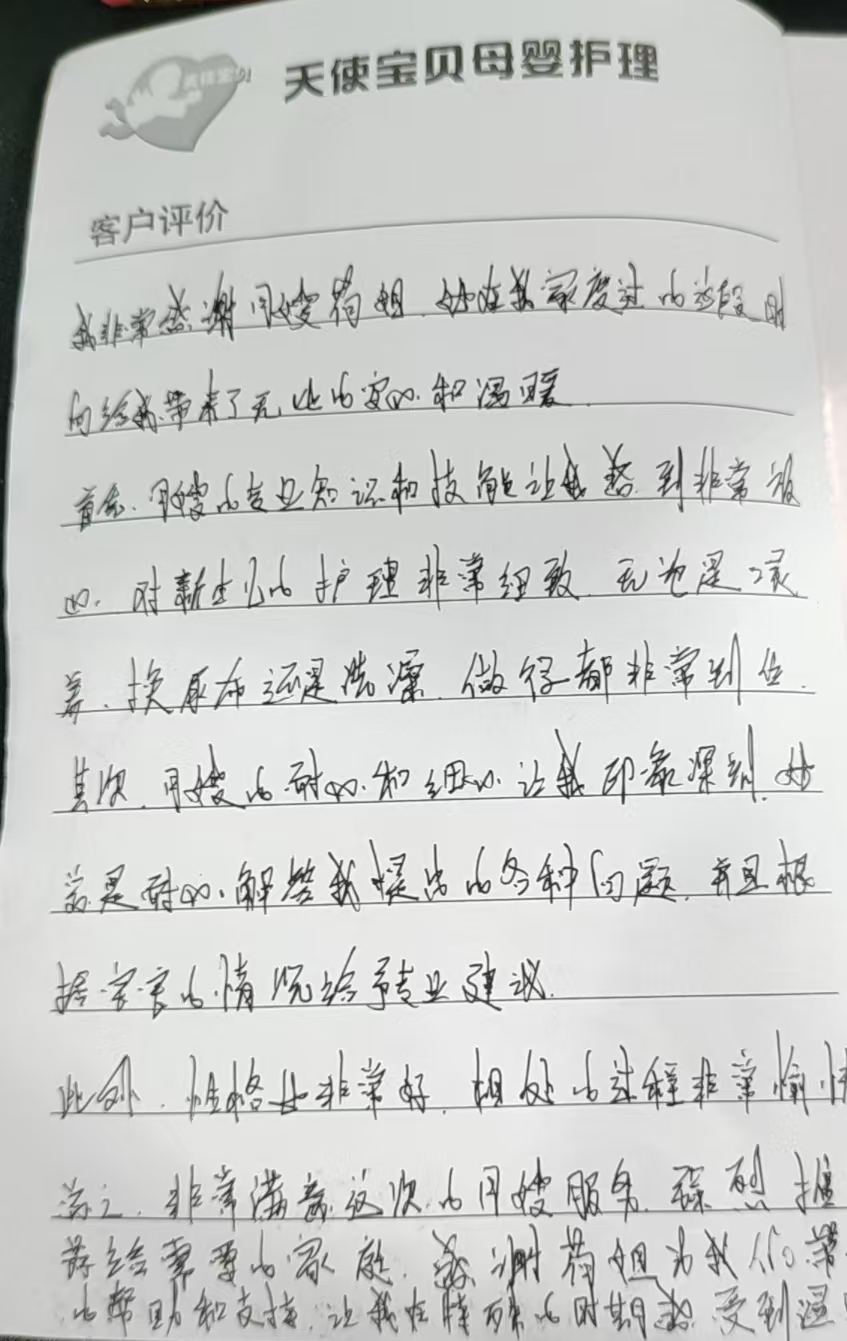 天使宝贝母婴护理
客户评价
我非常感谢月嫂荷姐，她在我家度过的这段时
间给我带来了无比的安心和温暖．
首先，月嫂的专业知识和技能让我感到非常放
心，对新生儿的护理非常细致，无论是喂
养、换尿布还是洗澡，做得都非常到位．
其次，月嫂的耐心和细心让我印象深刻，她
总是耐心解答我提出的各种问题，并且根
据宝宝的情况给予专业建议．
此外，性格也非常好，相处的过程非常愉快
总之，非常满意这次的月嫂服务，强烈推
荐给需要的家庭，感谢荷姐为我们带
的帮助和支持，让我在特殊的时期感受到温